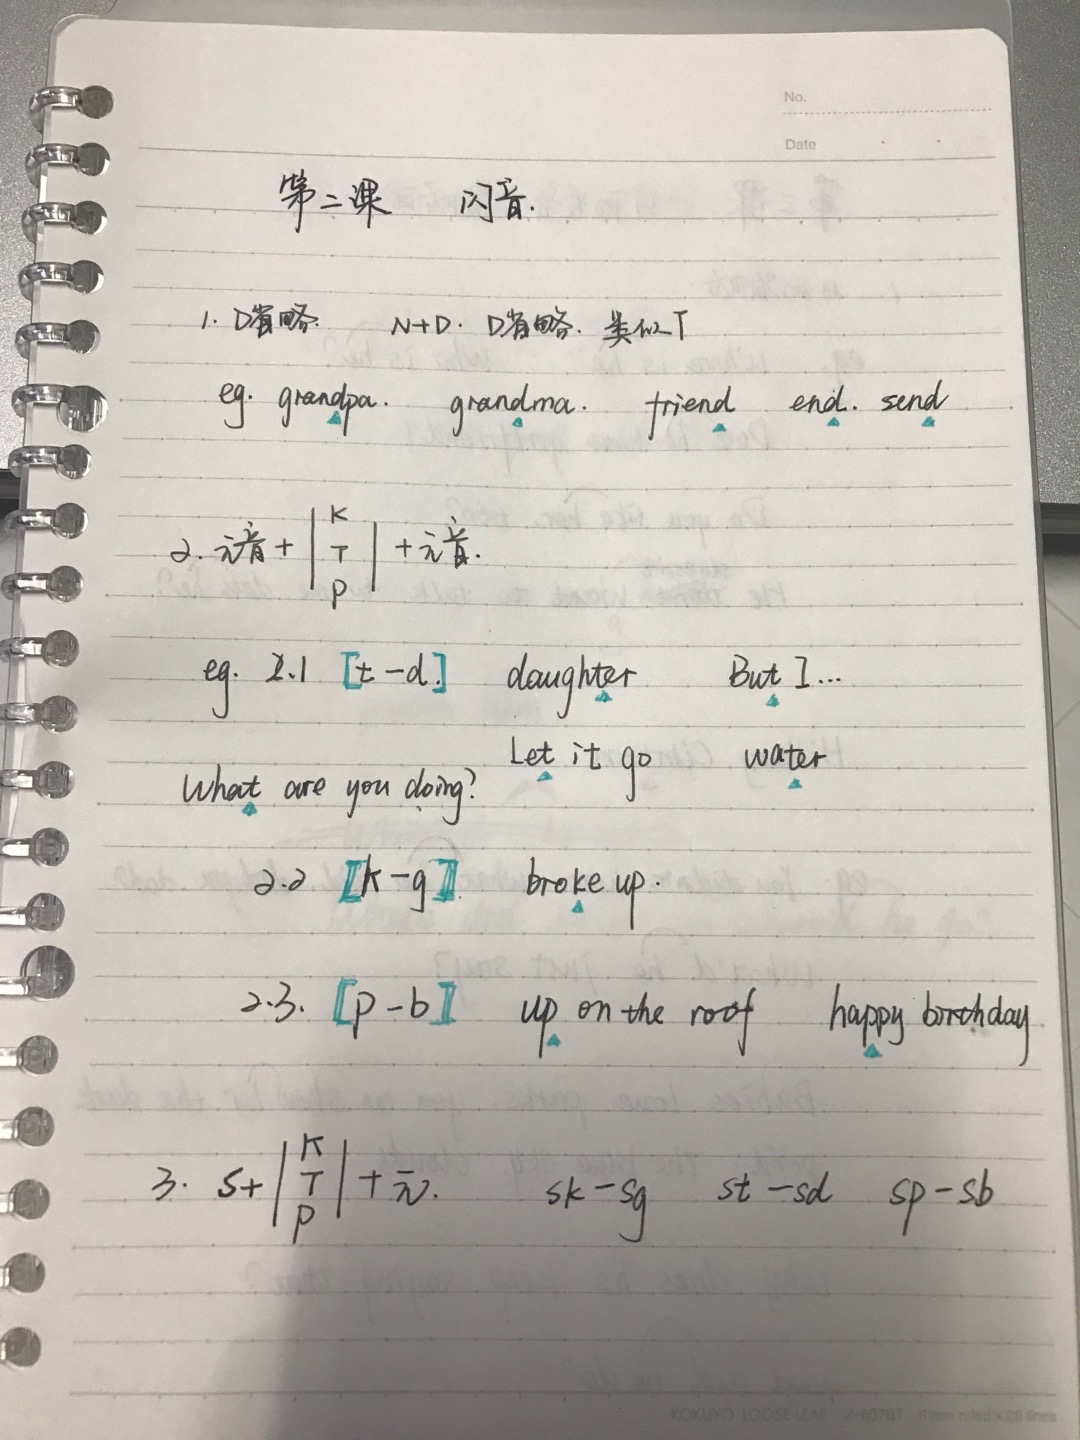 No.
Date
第二课 闪音.
1. D省略. N+D. D省略. 类似T
eg. grandpa. grandma. friend end. send
2. 元音+ | K T P | +元音.
eg. 2.1 [t-d] daughter But I...
Let it go water
What are you doing?
2.2 [k-g] broke up.
2.3. [p-b] up on the roof happy birthday
3. S+ | K T P | +元. sk-sg st-sd sp-sb
KOKUYO LOOSE-LEAF